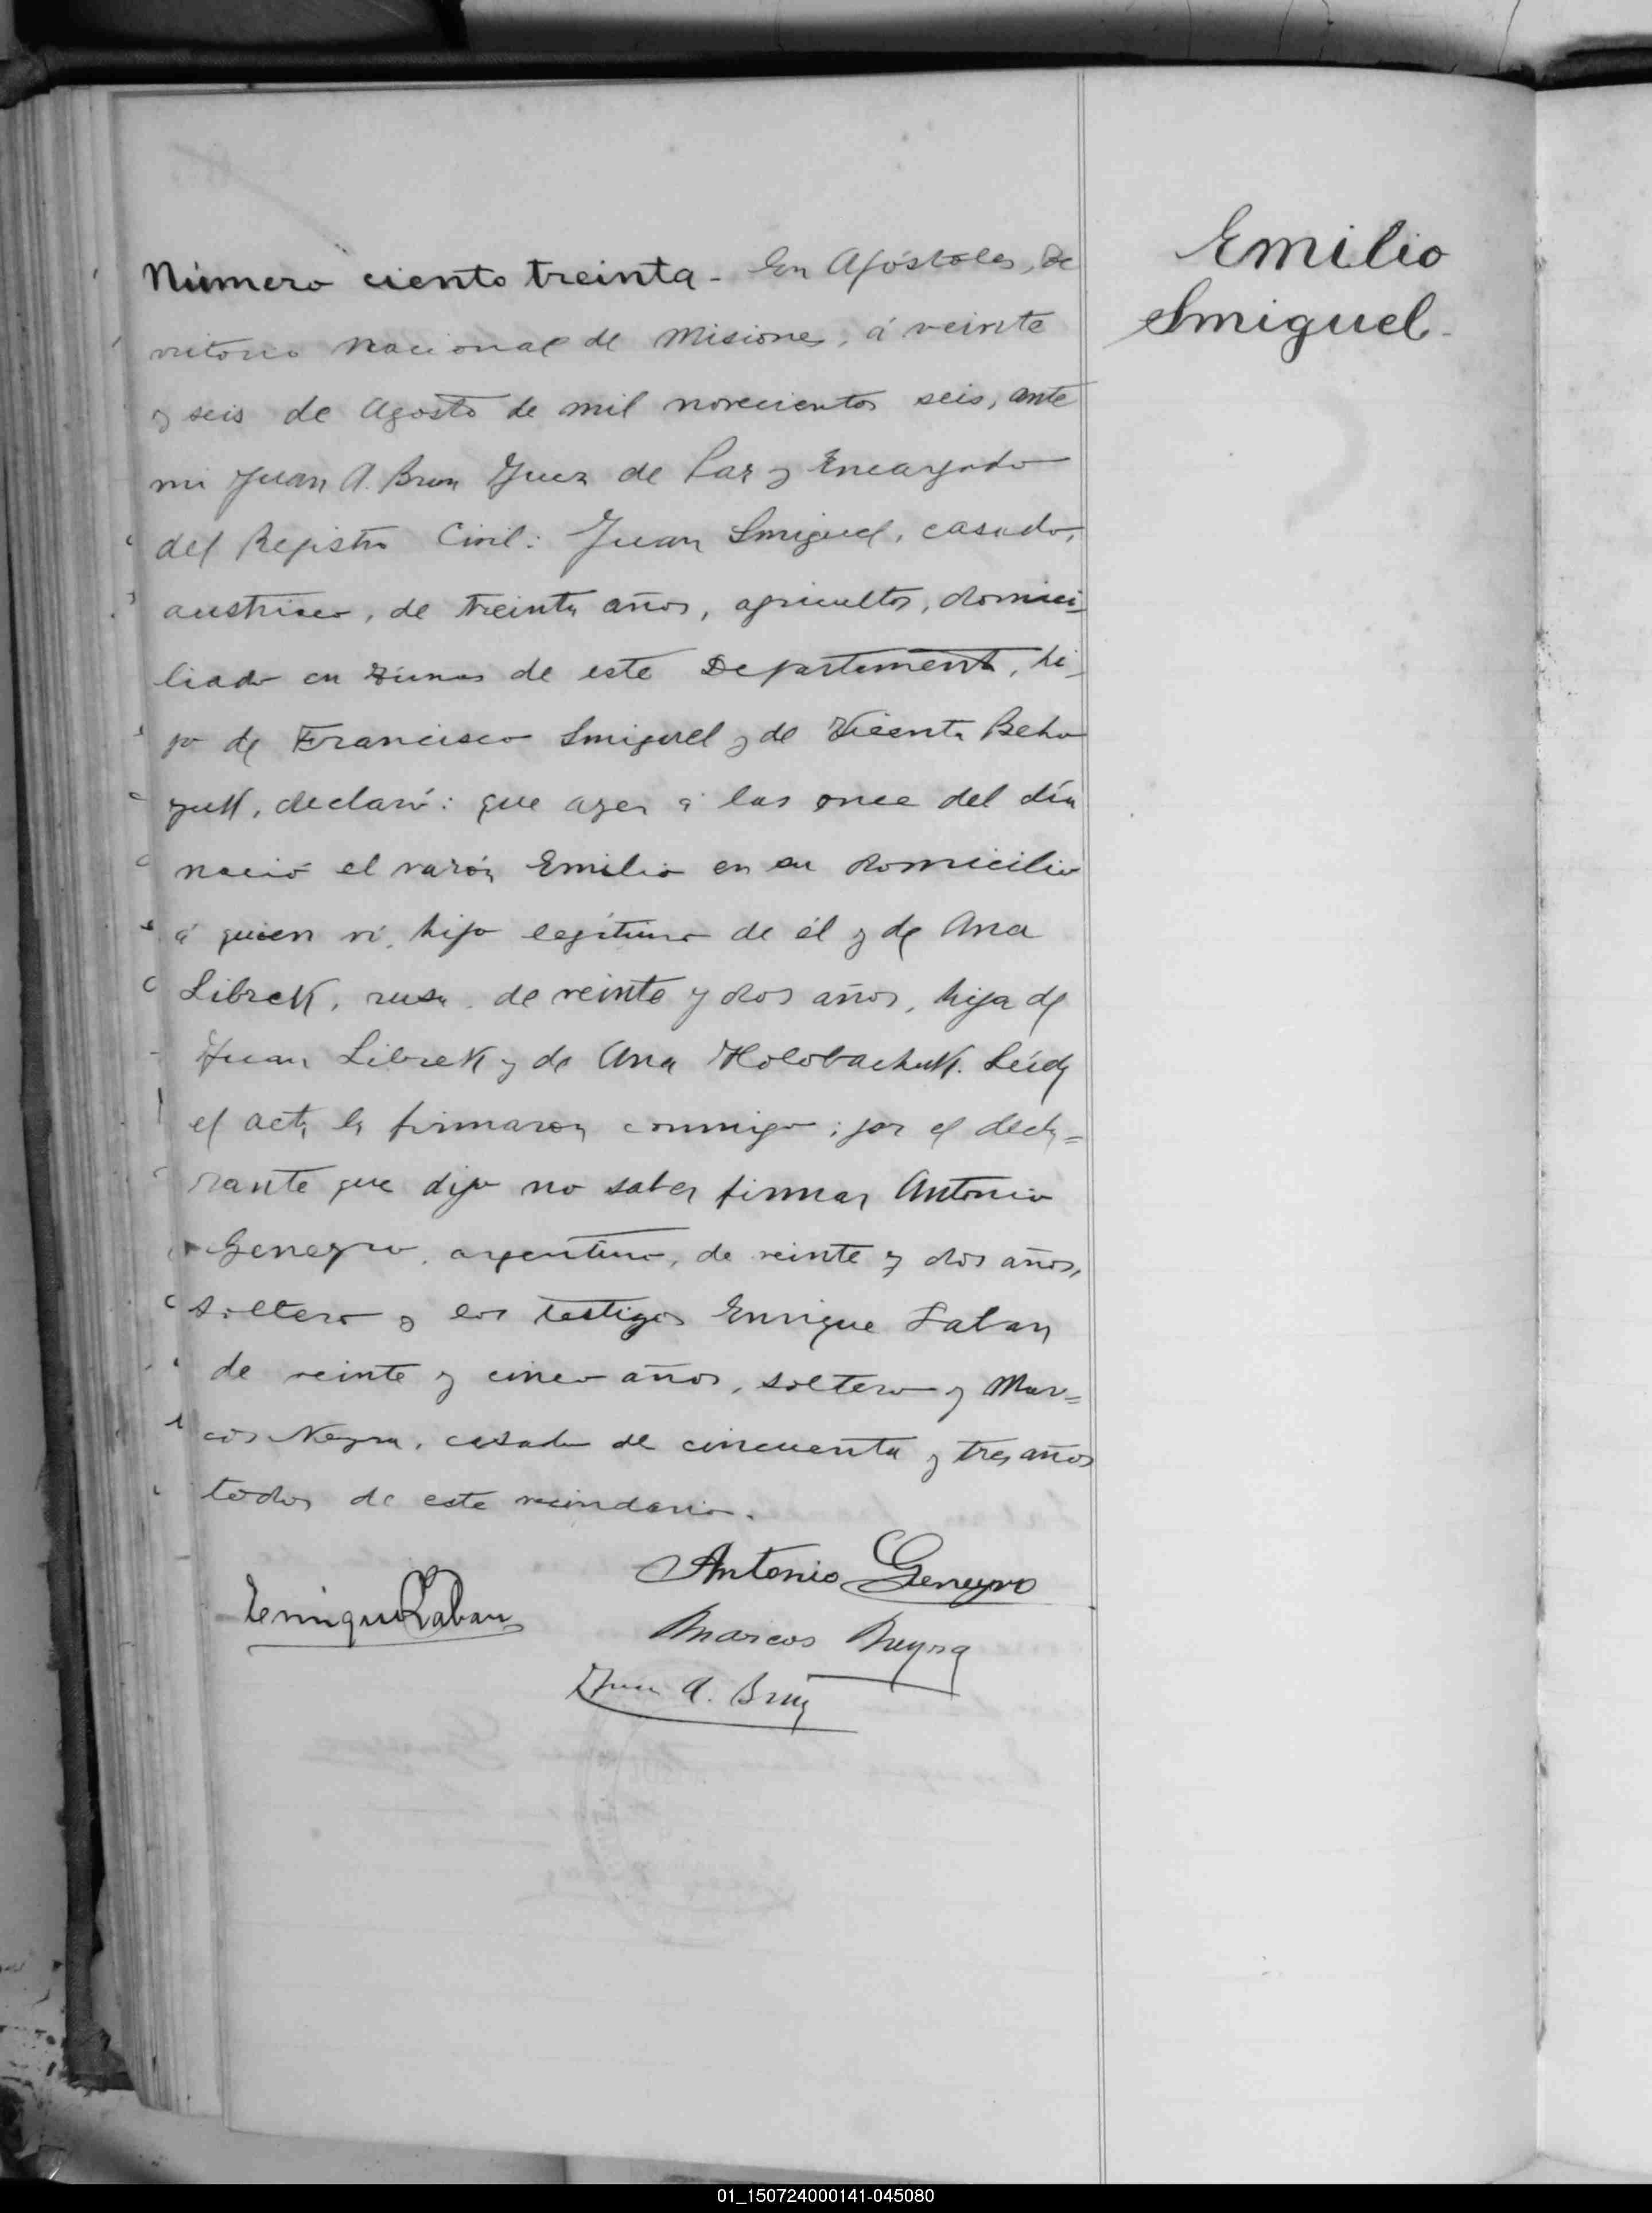 Número ciento treinta - En Apóstoles, Te
rritorio Nacional de Misiones, á veinte
y seis de Agosto de mil novecientos seis, ante
mi Juan A. Brun Juez de Paz y Encargado
del Registro Civil: Juan Smiguel, casado,
austriaco, de treinta años, agricultor, domici-
liado en de este Departamento, hi-
jo de Francisco Smiguel y de Vicenta Beho
zuk, declaró: que ayer á las once del día
nació el varón Emilio en su domicilio
á quien ví, hijo legítimo de él y de Ana
Librek, rusa, de veinte y dos años, hija de
Juan Librek y de Ana Holobachuk. Leída
el acta la firmaron conmigo; por el decla=
rante que dijo no saber firmar Antonio
Genegro, argentino, de veinte y dos años,
soltero y los testigos Enrique Laban
de veinte y cinco años, soltero y Mar=
cos Neyra, casado de cincuenta y tres años
todos de este vecindario.
Antonio Genegro
Enrique Laban
Marcos Neyra
Juan A. Brun
Emilio
Smiguel-
01_150724000141-045080